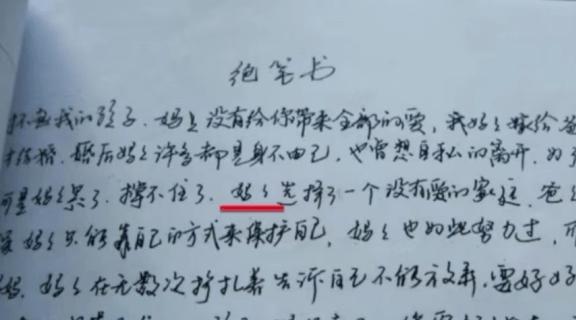 绝笔书
我的孩子、妈妈没有给你带来全部的爱，我妈妈嫁给爸
结婚、婚后妈妈许多都是身不由己，也曾想自私的离开，为了
可是妈妈累了，撑不住了，妈妈选择了一个没有爱的家庭，爸
妈妈只能靠自己的方式来保护自己，妈妈也如此努力过，可
妈，妈妈在无数次挣扎着告诉自己不能放弃，要好好